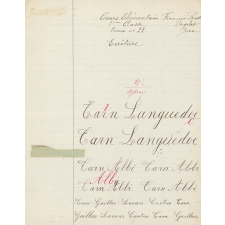 Cours Élémentaire
1ère Classe
Écriture
Tarn Languedoc
Tarn Languedoc
Tarn Albi Tarn Albi
Alby
Tarn Albi Tarn Albi
Tarn Gaillac Lavaur Castres Tarn
Gaillac Lavaur Castres Tarn Gaillac